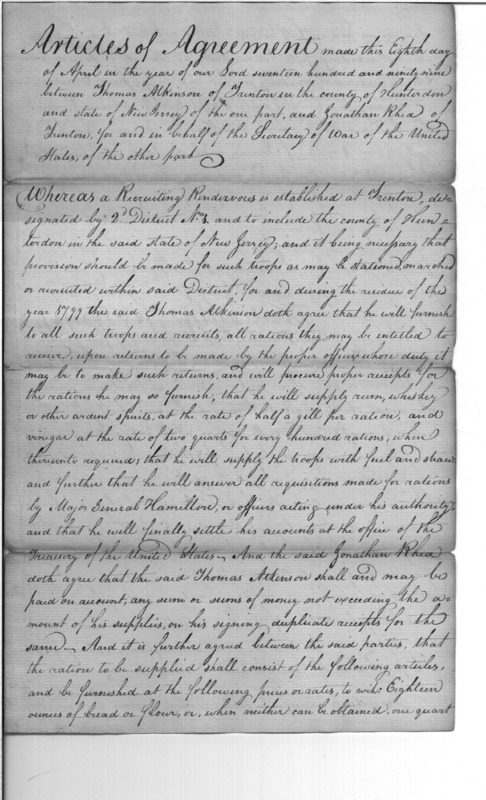 Articles of Agreement made this Eighth day
of April in the year of our Lord seventeen hundred and ninety nine
between Thomas Atkinson of Trenton in the county of Hunterdon
and state of New Jersey of the one part, and Jonathan Rhea of
Trenton, for and in behalf of the Secretary of War of the United
States, of the other part
Whereas a Recruiting Rendezvous is established at Trenton, de-
signated by 2d District No and to include the county of Hun-
terdon in the said state of New Jersey; and it being necessary that
provision should be made for such troops as may be stationed, marched
or recruited within said District, for and during the residue of the
year 1799 the said Thomas Atkinson doth agree that he will furnish
to all such troops and recruits, all rations they may be entitled to
receive, upon returns to be made by the proper officer whose duty it
may be to make such returns, and will procure proper receipts for
the rations he may so furnish; that he will supply rum, whiskey
or other ardent spirits, at the rate of half a gill per ration, and
vinegar at the rate of two quarts for every hundred rations, when
thereunto required; that he will supply the troops with fuel and straw
and further that he will answer all requisitions made for rations
by Major General Hamilton, or officers acting under his authority,
and that he will finally settle his accounts at the office of the
Treasury of the United States. And the said Jonathan Rhea
doth agree that the said Thomas Atkinson shall and may be
paid on account, any sum or sums of money not exceeding the a-
mount of his supplies, on his signing duplicate receipts for the
same. And it is further agreed between the said parties, that
the ration to be supplied shall consist of the following articles,
and be furnished at the following prices or rates, to wit: Eighteen
ounces of bread or flour, or, when neither can be obtained, one quart